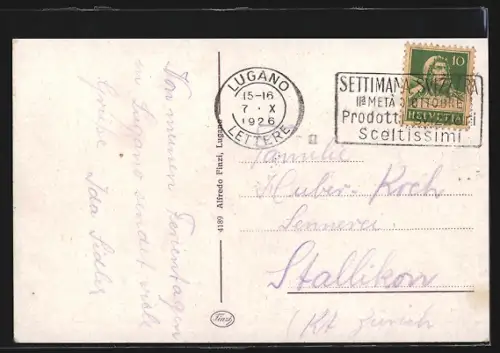 Von unsern Ferientagen
in Lugano sendet viele
Grüsse Ida Sidler
4189 Alfredo Finzi, Lugano
Finzi
LUGANO
15-16
7 · X
1926
LETTERE
10
HELVETIA
SETTIMANA SVIZZERA
IIª METÀ D'OTTOBRE
Prodotti
Sceltissimi
Familie
Huber-Koch
Sennerei
Stallikon
(Kt Zürich